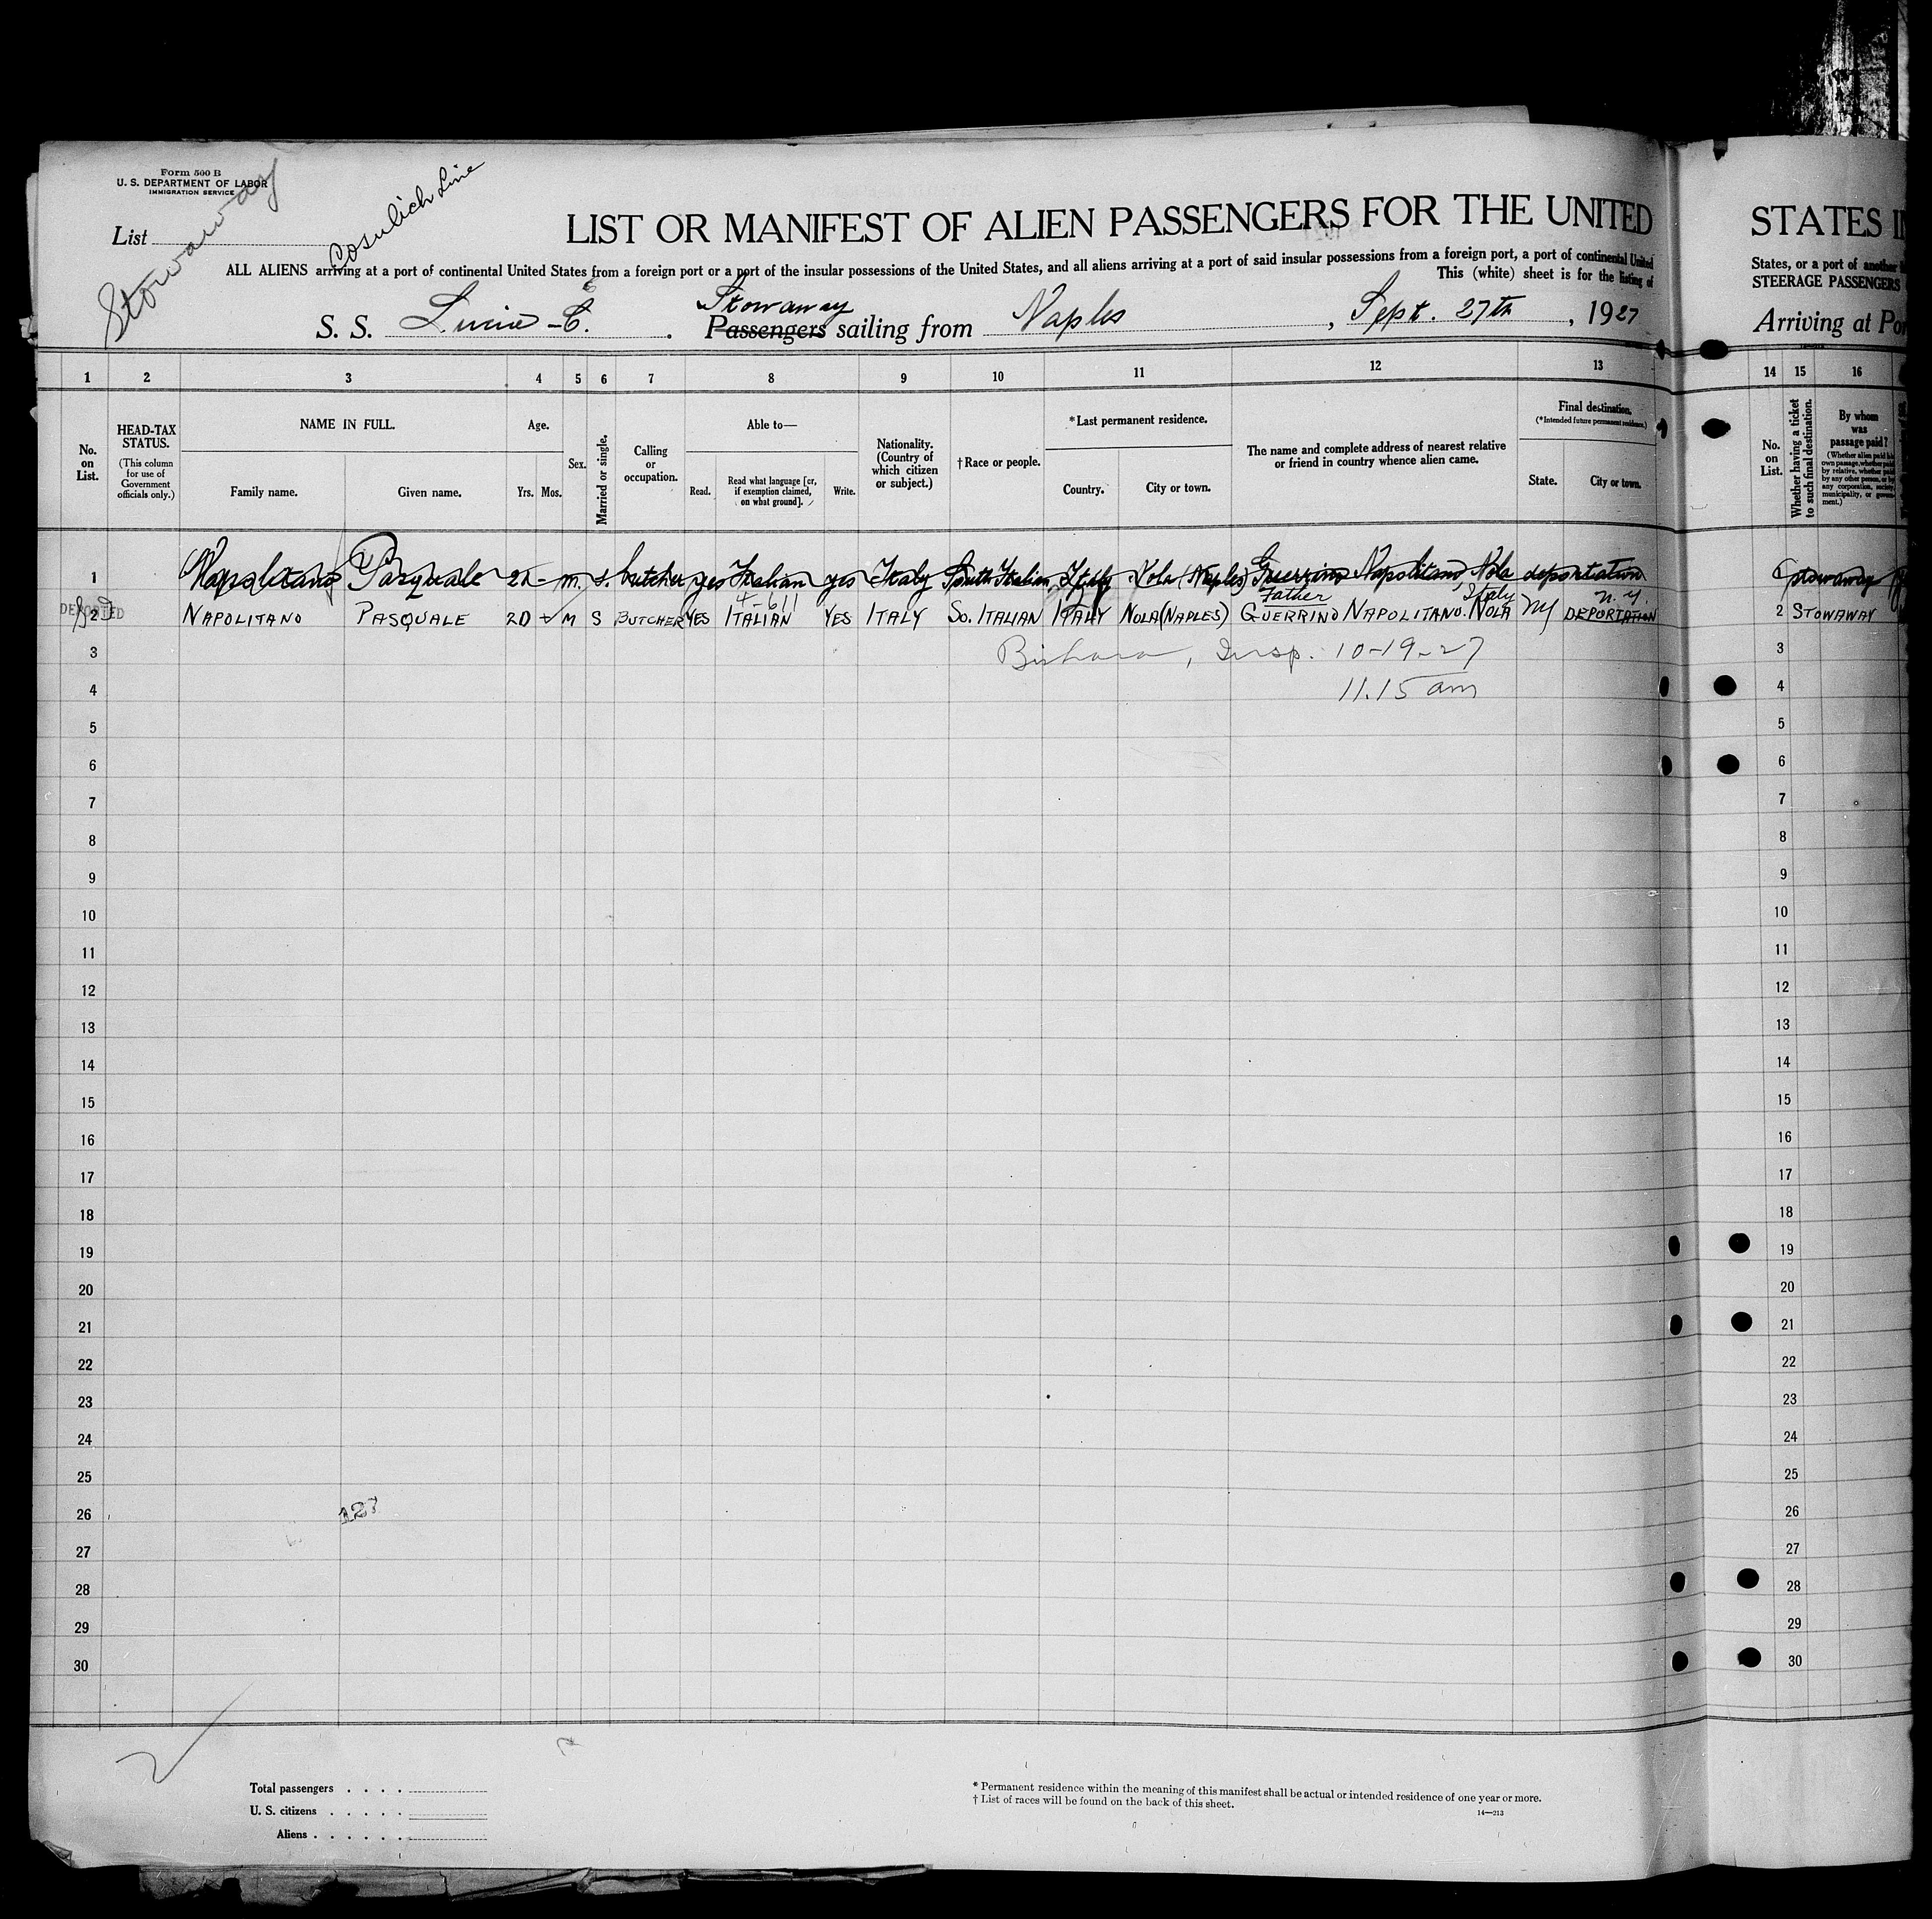 Form 500 B
U. S. DEPARTMENT OF LABOR
IMMIGRATION SERVICE
Stowaway
Cosulich Line
List
LIST OR MANIFEST OF ALIEN PASSENGERS FOR THE UNITED
ALL ALIENS arriving at a port of continental United States from a foreign port or a port of the insular possessions of the United States, and all aliens arriving at a port of said insular possessions from a foreign port, a port of continental United
This (white) sheet is for the listing of
Stowaway
S. S. Lucia - C. Passengers sailing from Naples, Sept. 27th, 1927
1 2 3 4 5 6 7 8 9 10 11 12 13
No. on List.
HEAD-TAX STATUS.
(This column for use of Government officials only.)
NAME IN FULL.
Family name. Given name.
Age.
Yrs. Mos.
Sex.
Married or single.
Calling or occupation.
Able to—
Read. Read what language [or, if exemption claimed, on what ground]. Write.
Nationality. (Country of which citizen or subject.)
†Race or people.
*Last permanent residence.
Country. City or town.
The name and complete address of nearest relative or friend in country whence alien came.
Final destination.
(*Intended future permanent residence.)
State. City or town.
1 Napolitano Pasquale 20 - m. s. butcher yes Italian yes Italy South Italian Italy Nola (Naples) Guerrino Napolitano, Nola deportation
4-611 Father Italy N.Y.
DEPORTED
2 NAPOLITANO PASQUALE 20 M S BUTCHER YES ITALIAN YES ITALY SO. ITALIAN ITALY NOLA (NAPLES) GUERRINO NAPOLITANO. NOLA NY DEPORTATION
3 Insp. 10-19-27
4 11.15 am
5
6
7
8
9
10
11
12
13
14
15
16
17
18
19
20
21
22
23
24
25
26 127
27
28
29
30
Total passengers
U. S. citizens
Aliens
* Permanent residence within the meaning of this manifest shall be actual or intended residence of one year or more.
† List of races will be found on the back of this sheet.
14—213
STATES I
States, or a port of another
STEERAGE PASSENGERS
Arriving at Po
14 15 16
No. on List.
Whether having a ticket to such final destination.
By whom was passage paid?
(Whether alien paid his own passage, whether paid by relative, whether paid by any other person, or by any corporation, society, municipality, or government.)
stowaway
2 STOWAWAY
3
4
5
6
7
8
9
10
11
12
13
14
15
16
17
18
19
20
21
22
23
24
25
26
27
28
29
30